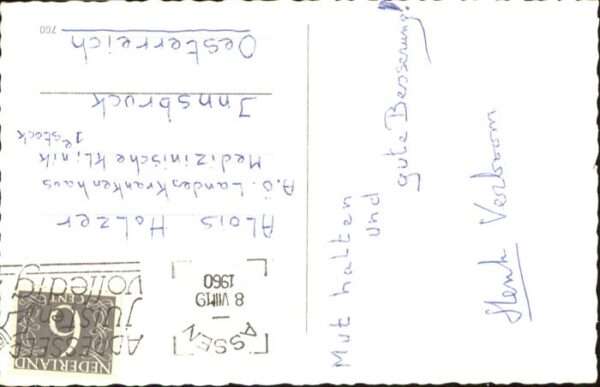 Mut halten
und
gute Besserung!
Henk Verboom
ASSEN
8 VIII 19
1960
ADRESSEER
JUIST EN
volledig
NEDERLAND
6
CENT
Alois Holzer
A.Ö. Landeskrankenhaus
Medizinische Klinik
1e Stock
Innsbruck
Oesterreich
700